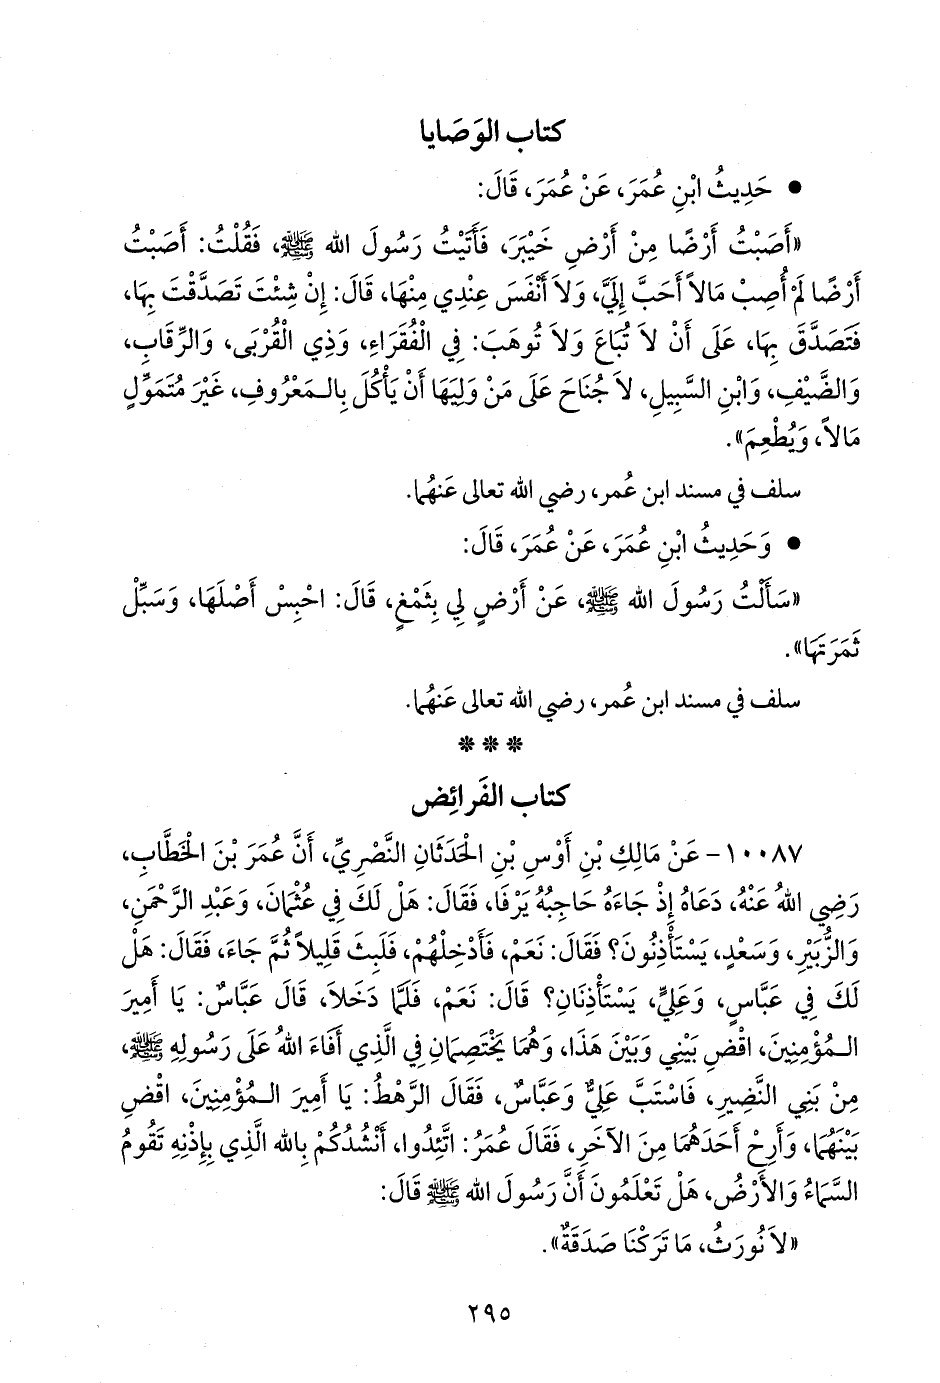 كتاب الوَصَايا
• حَدِيثُ ابْنِ عُمَرَ، عَنْ عُمَرَ، قَالَ:
«أَصَبْتُ أَرْضًا مِنْ أَرْضِ خَيْبَرَ، فَأَتَيْتُ رَسُولَ الله ﷺ، فَقُلْتُ: أَصَبْتُ
أَرْضًا لَمْ أُصِبْ مَالاً أَحَبَّ إِلَيَّ، وَلاَ أَنْفَسَ عِنْدِي مِنْهَا، قَالَ: إِنْ شِئْتَ تَصَدَّقْتَ بِهَا،
فَتَصَدَّقَ بِهَا، عَلَى أَنْ لاَ تُبَاعَ وَلاَ تُوهَبَ: فِي الْفُقَرَاءِ، وَذِي الْقُرْبَى، وَالرِّقَابِ،
وَالضَّيْفِ، وَابْنِ السَّبِيلِ، لاَ جُنَاحَ عَلَى مَنْ وَلِيَهَا أَنْ يَأْكُلَ بِالـمَعْرُوفِ، غَيْرَ مُتَمَوِّلٍ
مَالاً، وَيُطْعِمَ».
سلف في مسند ابن عُمر، رضي الله تعالى عَنهُما.
• وَحَدِيثُ ابْنِ عُمَرَ، عَنْ عُمَرَ، قَالَ:
«سَأَلْتُ رَسُولَ الله ﷺ، عَنْ أَرْضٍ لِي بِثَمْغٍ، قَالَ: احْبِسْ أَصْلَهَا، وَسَبِّلْ
ثَمَرَتَهَا».
سلف في مسند ابن عُمر، رضي الله تعالى عَنهُما.
* * *
كتاب الفَرائِض
١٠٠٨٧- عَنْ مَالِكِ بْنِ أَوْسِ بْنِ الْحَدَثَانِ النَّصْرِيِّ، أَنَّ عُمَرَ بْنَ الْخَطَّابِ،
رَضِي اللهُ عَنْهُ، دَعَاهُ إِذْ جَاءَهُ حَاجِبُهُ يَرْفَا، فَقَالَ: هَلْ لَكَ فِي عُثْمَانَ، وَعَبْدِ الرَّحْمَنِ،
وَالزُّبَيْرِ، وَسَعْدٍ، يَسْتَأْذِنُونَ؟ فَقَالَ: نَعَمْ، فَأَدْخِلْهُمْ، فَلَبِثَ قَلِيلاً ثُمَّ جَاءَ، فَقَالَ: هَلْ
لَكَ فِي عَبَّاسٍ، وَعَلِيٍّ، يَسْتَأْذِنَانِ؟ قَالَ: نَعَمْ، فَلَمَّا دَخَلاَ، قَالَ عَبَّاسٌ: يَا أَمِيرَ
الـمُؤْمِنِينَ، اقْضِ بَيْنِي وَبَيْنَ هَذَا، وَهُمَا يَخْتَصِمَانِ فِي الَّذِي أَفَاءَ اللهُ عَلَى رَسُولِهِ ﷺ،
مِنْ بَنِي النَّضِيرِ، فَاسْتَبَّ عَلِيٌّ وَعَبَّاسٌ، فَقَالَ الرَّهْطُ: يَا أَمِيرَ الـمُؤْمِنِينَ، اقْضِ
بَيْنَهُمَا، وَأَرِحْ أَحَدَهُمَا مِنَ الآخَرِ، فَقَالَ عُمَرُ: اتَّئِدُوا، أَنْشُدُكُمْ بِالله الَّذِي بِإِذْنِهِ تَقُومُ
السَّمَاءُ وَالأَرْضُ، هَلْ تَعْلَمُونَ أَنَّ رَسُولَ الله ﷺ قَالَ:
«لاَ نُورَثُ، مَا تَرَكْنَا صَدَقَةٌ».
٢٩٥